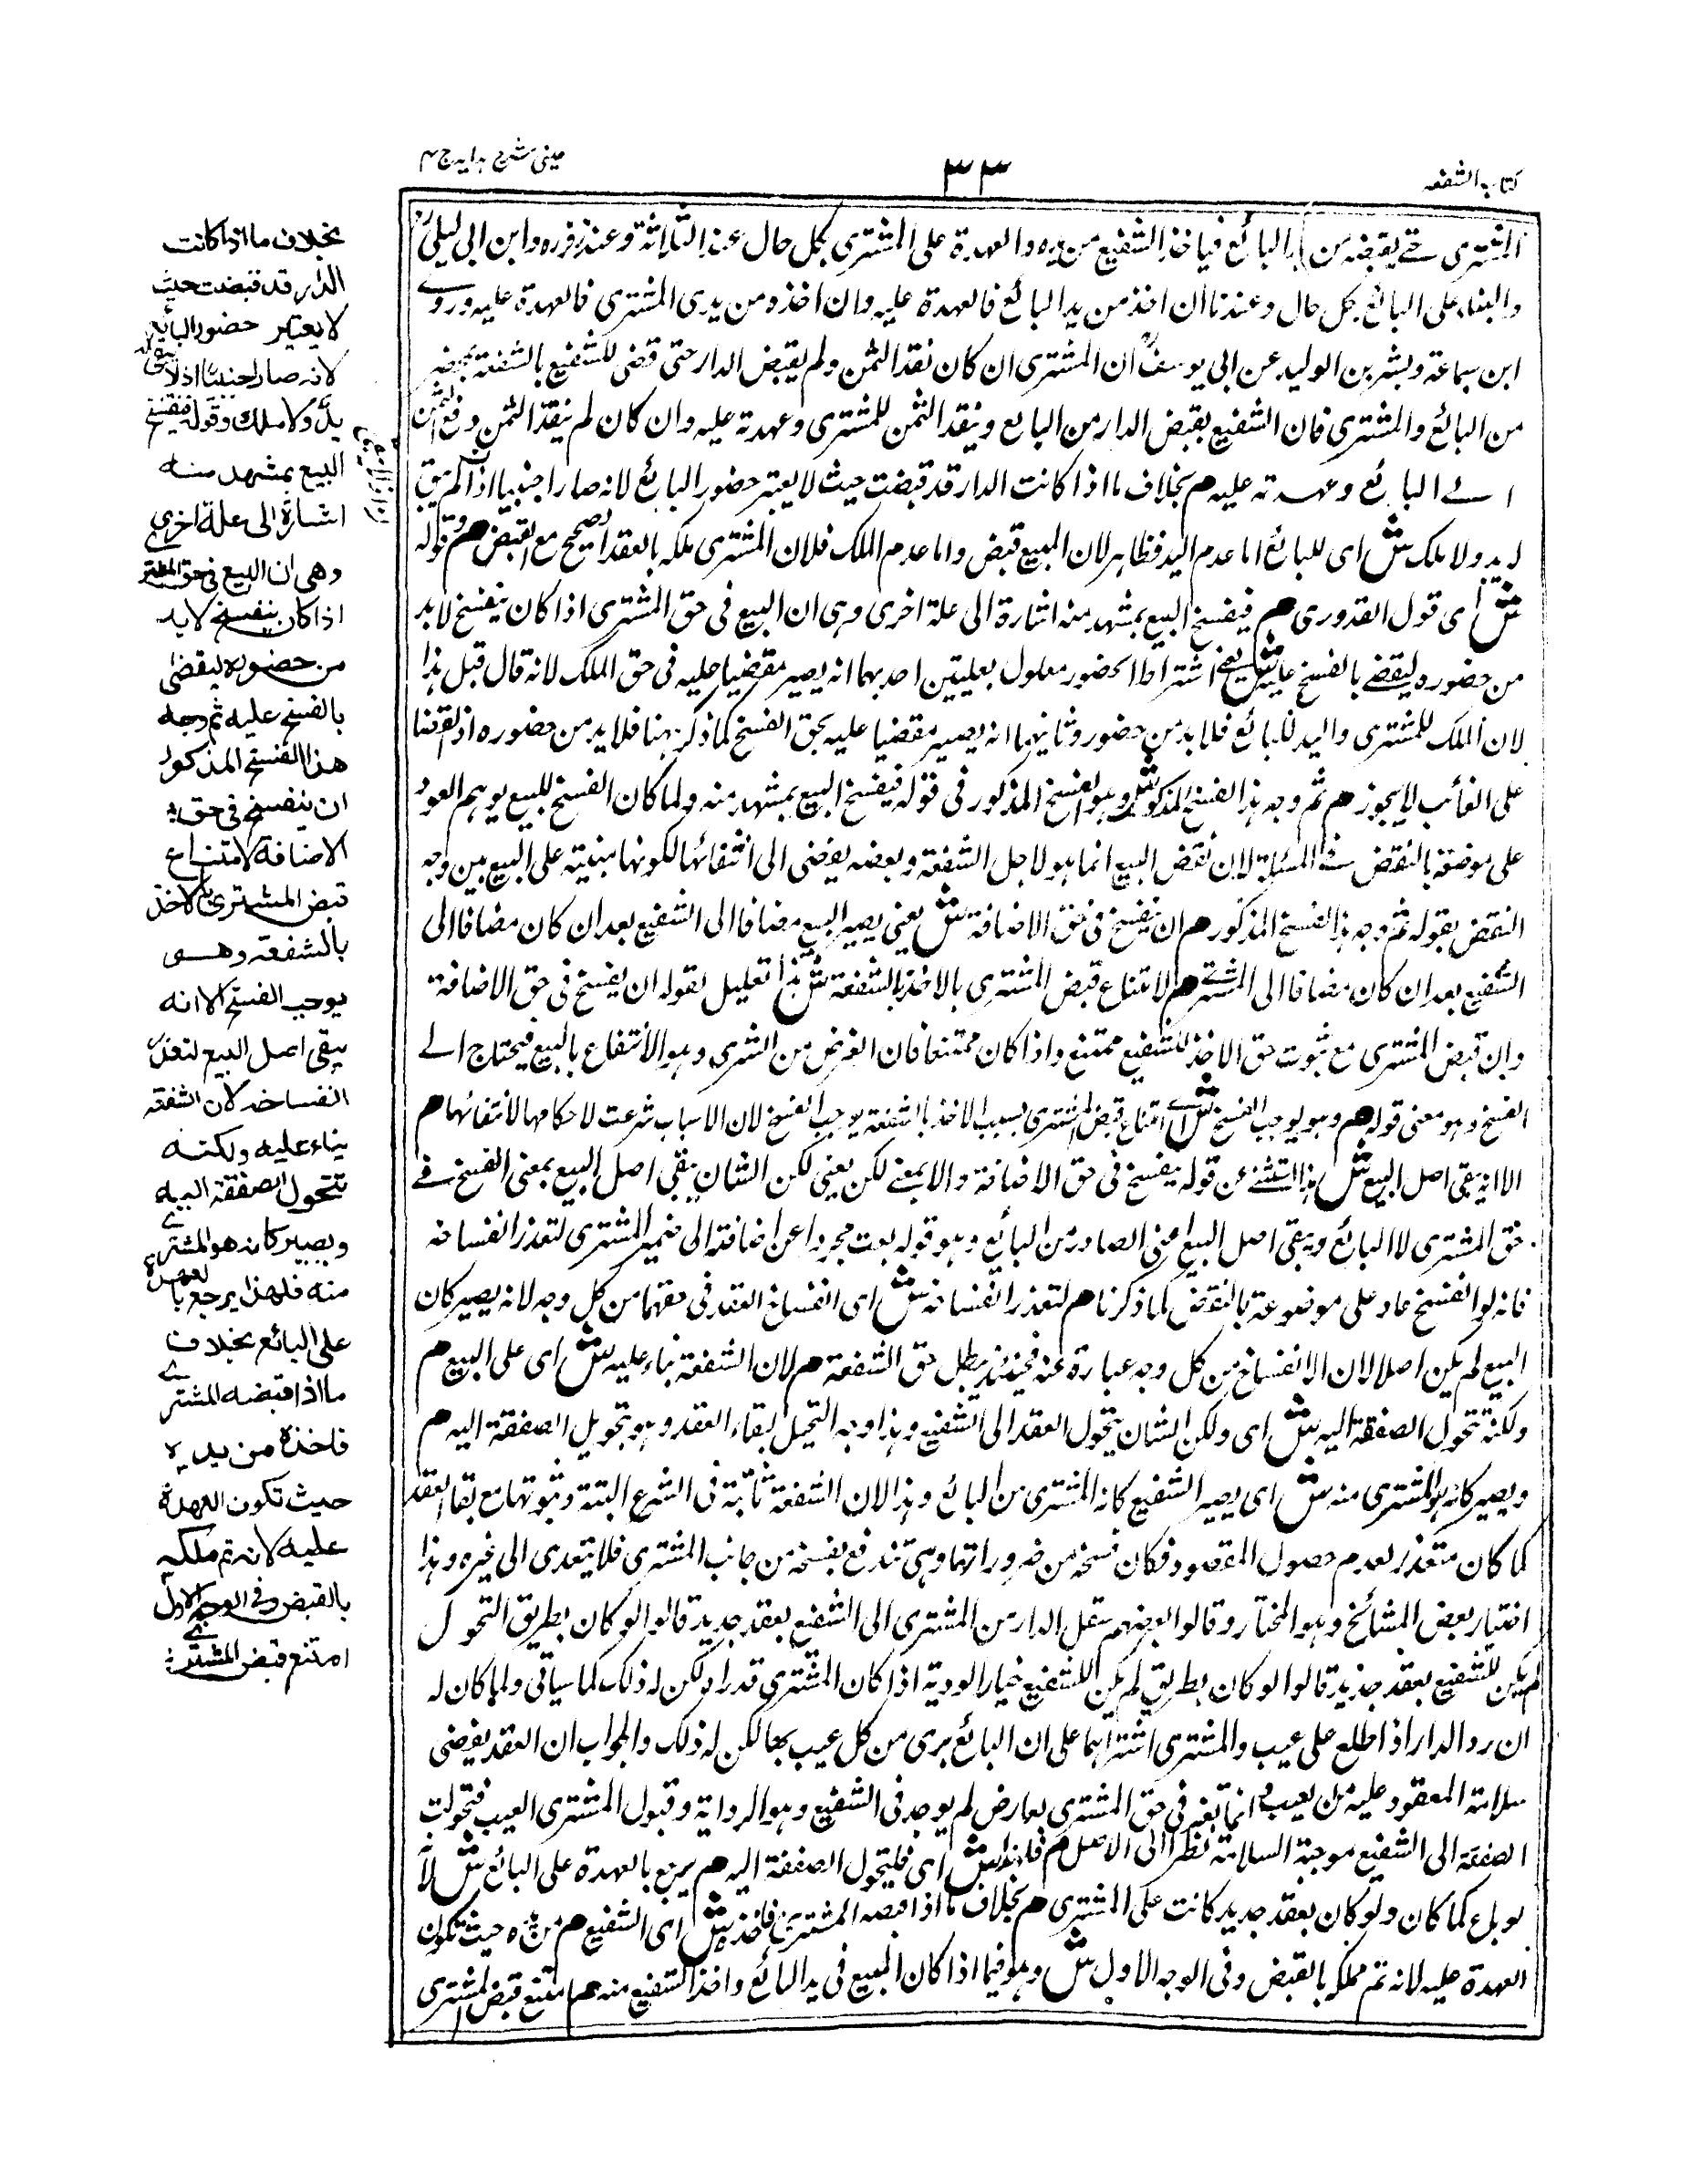 كتاب الشفعه
٣٣
عينى شرح هدايه ج ٤
المشترى حتى يقبضه من البائع فياخذ الشفيع من يده والعهدة على المشترى بكل حال عند الثلاثة وعند زفر وابن ابى ليلى
على البائع بكل حال وعندنا ان اخذ من يد البائع فالعهدة عليه وان اخذه من يدى المشترى فالعهدة عليه وروى
ابن سماعة وبشر بن الوليد عن ابى يوسف ان المشترى ان كان نقد الثمن ولم يقبض الدار حتى قضى للشفيع بالشفعة بمحضر
من البائع والمشترى فان الشفيع يقبض الدار من البايع وينقد الثمن للمشترى وعهدته عليه وان كان لم ينقد الثمن دفع الثمن
الى البائع وعهدته عليه م بخلاف ما اذا كانت الدار قد قبضت حيث لا يعتبر حضور البائع لانه صار اجنبيا اذ لم يبق
له يد ولا ملك ش اى للبائع اما عدم اليد فظاهر لان المبيع قبض واما عدم الملك فلان المشترى ملكه بالعقد الصحيح مع القبض م وقوله
ش اى قول القدورى م فيفسخ البيع بمشهد منه اشارة الى علة اخرى وهى ان البيع فى حق المشترى اذا كان ينفسخ لا بد
من حضوره ليقضى بالفسخ عليه ش يعنى اشتراط الحضور معلول بعلتين احدهما انه يصير مقضيا عليه فى حق الملك لانه قال قبل هذا
لان الملك للمشترى واليد للبائع فلا بد من حضور وثانيهما انه يصير مقضيا عليه بحق الفسخ كما ذكر هنا فلا بد من حضوره اذ القضا
على الغائب لا يجوز م ثم وجه هذا الفسخ المذكور ش وهو الفسخ المذكور فى قوله فيفسخ البيع بمشهد منه ولما كان الفسخ للبيع يوهم العود
على موضوعه بالنقض فى المسئلة لان نقض البيع انما هو لاجل الشفعة وبعضه يفضى الى انتفائها لكونها مبنية على البيع بين وجه
النقض بقوله ثم وجه هذا الفسخ المذكور م ان ينفسخ فى حق الاضافة ش يعنى يصير البيع مضافا الى الشفيع بعد ان كان مضافا الى
الشفيع بعد ان كان مضافا الى المشترى م لامتناع قبض المشترى بالاخذ بالشفعة ش هذا تعليل لقوله ان يفسخ فى حق الاضافة
وان قبض المشترى مع ثبوت حق الاخذ للشفيع ممتنع واذا كان ممتنعا فان الغرض من الشرى وهو الانتفاع بالمبيع فيحتاج الى
الفسخ وهو معنى قوله م وهو يوجب الفسخ ش اى امتناع قبض المشترى بسبب الاخذ بالشفعة يوجب الفسخ لان الاسباب شرعت لاحكامها لانتفائها م
الا انه يبقى اصل البيع ش هذا استثنى من قوله ينفسخ فى حق الاضافة والا بمعنى لكن يعنى لكن الشان يبقى اصل البيع بمعنى الفسخ فى
حق المشترى لا البائع ويبقى اصل البيع اعنى الصادر من البائع وهو قوله بعت مجردا عن اضافته الى ضمير المشترى لتعذر انفساخه
فانه لو انفسخ عاد على موضوعه بالنقض كما ذكرنا م لتعذر انفساخه ش اى انفساخ العقد فى حقهما من كل وجه لانه يصير كان
البيع لم يكن اصلا لان الانفساخ من كل وجه عبارة عنه فحينئذ يبطل حق الشفعة م لان الشفعة بناء عليه ش اى على البيع م
ولكنه تتحول الصفقة اليه ش اى ولكن الشان يتحول العقد الى الشفيع وهذا وجه التحيل لبقاء العقد وهو تحويل الصفقة اليه م
ويصير كانه هو المشترى منه ش اى يصير الشفيع كانه المشترى من البائع وهذا لان الشفعة ثابتة فى الشرع البتة وثبوتها مع بقاء العقد
كما كان متعذر لعدم حصول المقصود فكان فسخه من ضروراتها وهى تندفع بفسخه من جانب المشترى فلا يتعدى الى غيره وهذا
اختيار بعض المشائخ وهو المختار وقالوا بعضهم ينتقل الدار من المشترى الى الشفيع بعقد جديد قالوا لو كان بطريق التحول
لم يكن للشفيع بعقد جديد قالوا لو كان بطريق لم يكن للشفيع خيار الروية اذا كان المشترى قد راه لكن له ذلك كما سياتى ولما كان له
ان رد الدار اذا اطلع على عيب والمشترى اشتراها على ان البائع برى من كل عيب بها لكن له ذلك والجواب ان العقد يفضى
سلامة المعقود عليه من العيب وانما تغير فى حق المشترى بعارض لم يوجد فى الشفيع وهو الرواية وقبول المشترى العيب فتحولت
الصفقة الى الشفيع موجبة السلامة نظرا الى الاصل م فلهذا ش اى فلتحول الصفقة اليه م يرجع بالعهدة على البائع ش لانه
كما كان ولو كان بعقد جديد كانت على المشترى م بخلاف ما اذا قبضه المشترى فاخذه ش اى الشفيع م من يده حيث تكون
العهدة عليه لانه تم ملكه بالقبض وفى الوجه الاول ش وهو فيما اذا كان المبيع فى يد البائع واخذ الشفيع منه م امتنع قبض المشترى
بخلاف ما اذا كانت
الدار قد قبضت حيث
لا يعتبر حضور البائع
لانه صار اجنبيا اذ لا يبقى له
يد ولا ملك وقوله فيفسخ
البيع بمشهد منه
اشارة الى علة اخرى
وهى ان البيع فى حق المشتر
اذا كان ينفسخ لا بد
من حضوره ليقضى
بالفسخ عليه ثم وجه
هذا الفسخ المذكور
ان ينفسخ فى حق
الاضافة لامتناع
قبض المشترى بالاخذ
بالشفعة وهى
يوجب الفسخ الا انه
يبقى اصل البيع لتعذر
انفساخه لان الشفعة
بناء عليه ولكنه
تتحول الصفقة اليه
ويصير كانه هو المشترى
منه فلهذا يرجع بالعهدة
على البائع بخلاف
ما اذا قبضه المشترى
فاخذه من يده
حيث تكون العهدة
عليه لانه تم ملكه
بالقبض وفى الوجه الاول
امتنع قبض المشترى